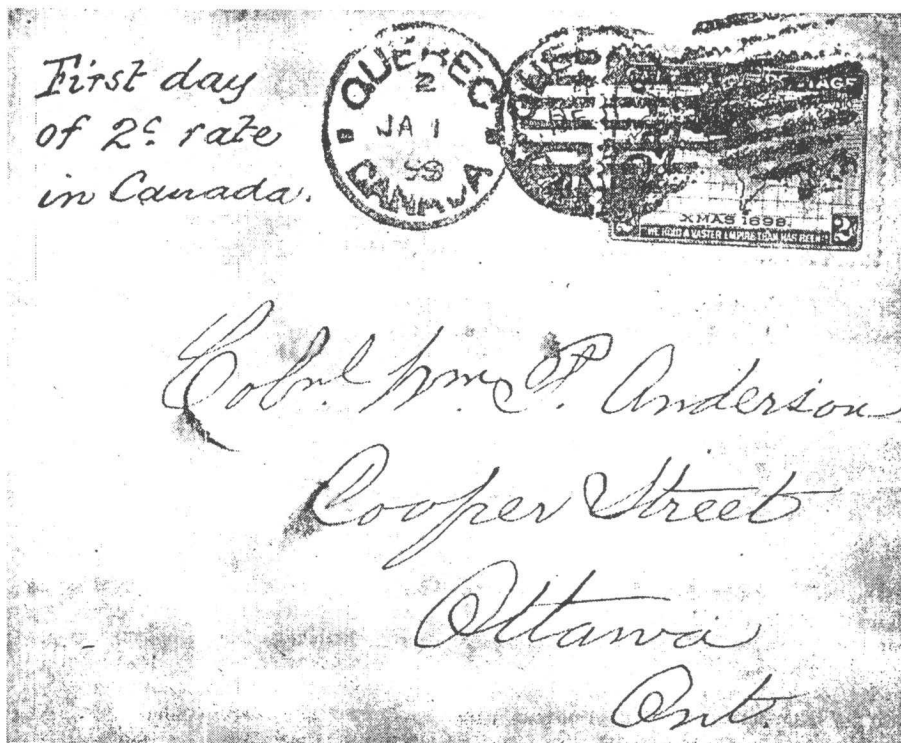 First day
of 2c rate
in Canada.
QUÉBEC
2
JA 1
99
CANADA
XMAS 1898.
WE HOLD A VASTER EMPIRE THAN HAS BEEN
2
Colnl. Wm. P. Anderson
Cooper Street
Ottawa
Ont.